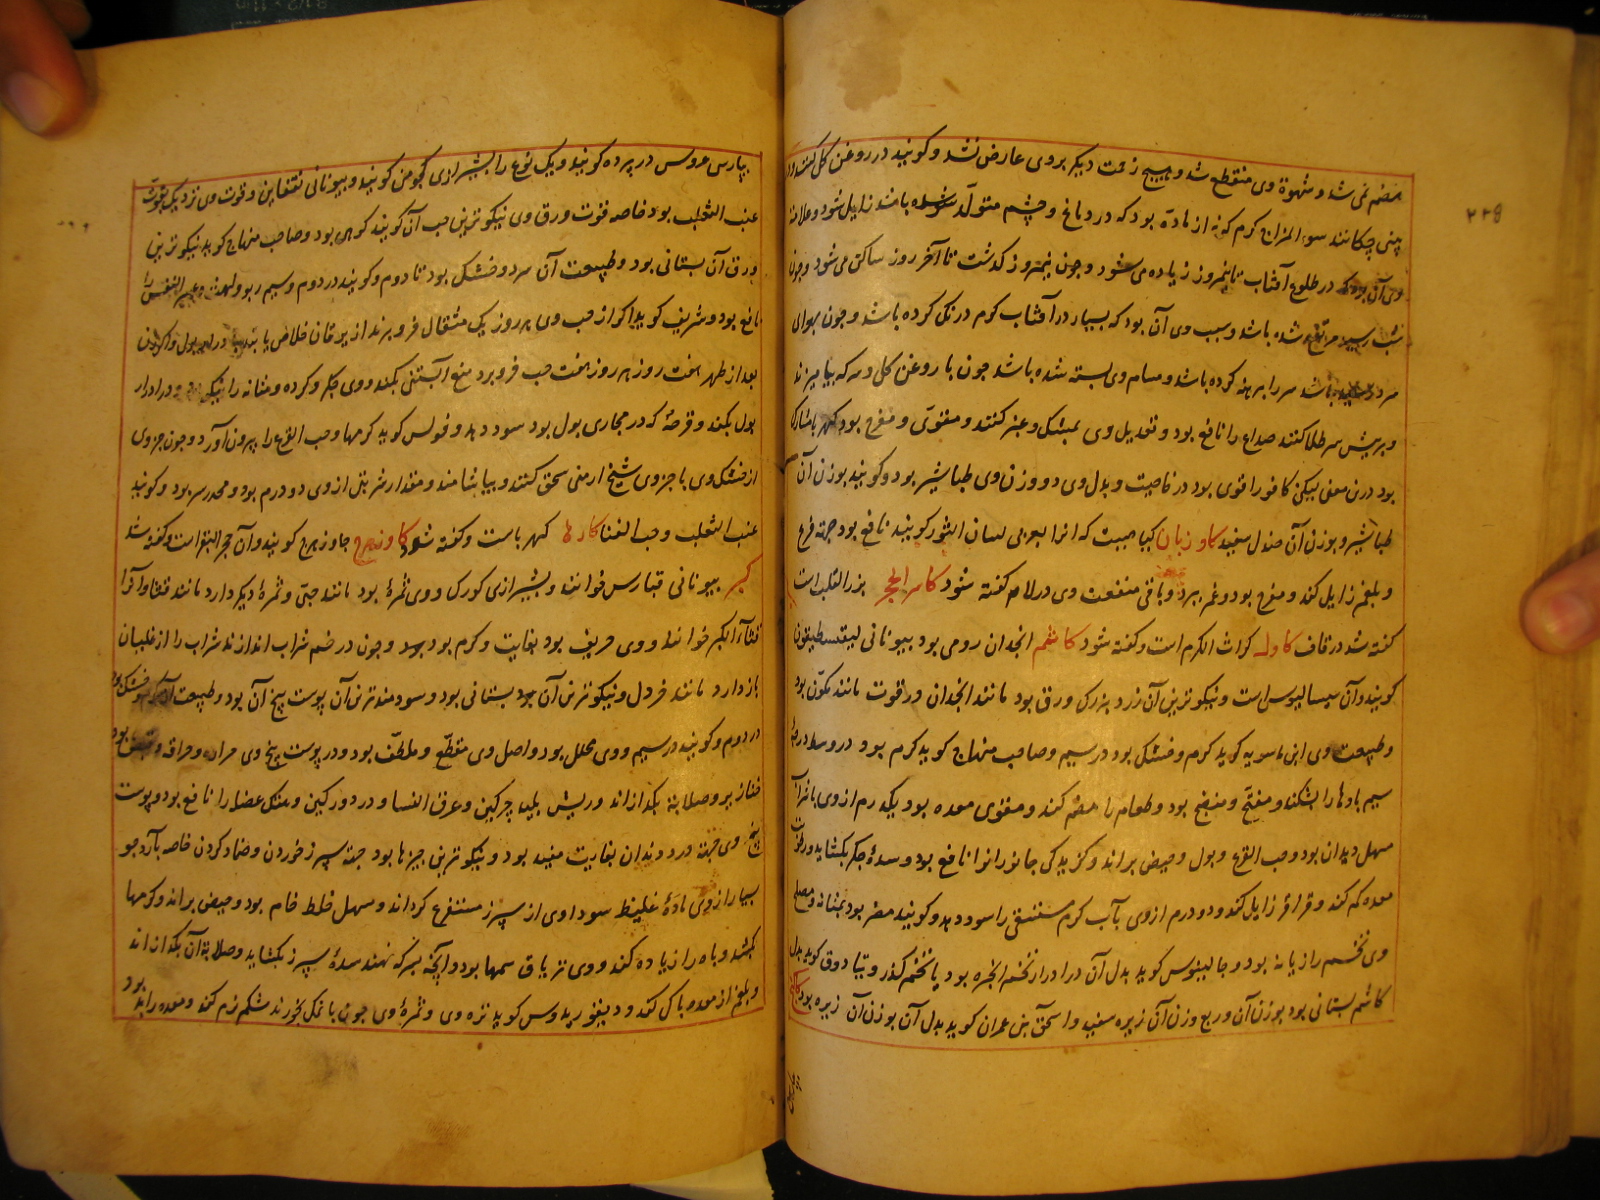 هضم نمی شد و شهوة وی منقطع شد و هیچ زحمت دیکر بروی عارض نشد و کویند در روغن کل کنند و در
بینی چکانند سوء المزاج کرم کونه از ماده بود که در دماغ و چشم متولد شده باشد زایل شود و علامة
وی آن بود که در طلوع آفتاب تا نیمروز زیاده می شود و چون نیمروز کذشت تا آخر روز ساکن می شود و چون
شب رسید مرتفع شده باشد و سبب وی آن بود که بسیار در آفتاب کرم درنک کرده باشد و چون بهوای
سرد باشد سر را برهنه کرده باشد و مسام وی بسته شده باشد چون با روغن کل و سرکه بیامیزند
و بر پیش سر طلا کنند صداع را نافع بود و تعدیل وی بمشک و عنبر کنند و مقوی و مفرح بود کهربا مشارک
بود درین معنی لیکن کافور اقوی بود در خاصیت و بدل وی دو وزن وی طباشیر بود و کویند بوزن آن
طباشیر و بوزن آن صندل سفید کاو زبان کیاهیست که انرا بعربی لسان الثور کویند نافع بود جهة فرح
و بلغم زایل کند و مفرح بود و غم ببرد و باقی منفعت وی در لام کفته شود کاسر الحجر بزر القلب است
کفته شد در قاف کاوله کراث الکرم است و کفته شود کاشم انجدان رومی بود بیونانی لیقسطیقون
کویند و آن سیسالیوس است و نیکوترین آن زرد بزرک ورق بود مانند انجدان و در قوت مانند کمون بود
و طبیعت وی ابن ماسویه کوید کرم و خشک بود در سیم و صاحب منهاج کوید کرم بود در وسط درجهٔ
سیم بادها را بشکند و مفتح و منضج بود و طعام را هضم کند و مقوی معده بود یکدرم از وی با شراب
مسهل دیدان بود و حب القرع و بول و حیض براند و کزیدکی جانورانرا نافع بود و سدهٔ جکر بکشاید و رطوبت
معده کم کند و قراقر زایل کند و دو درم از وی بآب کرم مستسقی را سود دهد و کویند مضر بود بمثانه و مصلح
وی تخم رازیانه بود و جالینوس کوید بدل آن در ادرار تخم انجره بود یا تخم کذر و تیادوق کوید بدل
کاشم بستانی بود بوزن آن و ربع وزن آن زیره سفید و اسحق بن عمران کوید بدل آن بوزن آن زیره بود
بپارس عروس در پرده کویند و یک نوع را بشیرازی کجومن کویند و بیونانی و قوت وی نزدیک بقوت
عنب الثعلب بود خاصه قوت ورق وی نیکوترین حب آن کویند کوهی بود و صاحب منهاج کوید نیکوترین
ورق آن بستانی بود و طبیعت آن سرد و خشک بود تا دوم و کویند در دوم و سیم ربو و لهث و عسر النفس را
نافع بود و شریف کوید اکر از حب وی هر روز یک مثقال فرو برند از یرقان خلاص یابند
بعد از طهر هفت روز هر روز هفت حب فرو برد منع آبستنی بکند و وی جکر و کرده و مثانه را نیکو بود و در ادرار
بول بکند و قرحهٔ که در مجاری بول بود سود دهد و فولس کوید کرمها و حب القرع را بیرون آورد و چون جزوی
از خشک وی با جزوی شیخ ارمنی سحق کنند و بیاشامند و مقدار شربتی از وی دو درم بود و مخدر سر بود و کویند
عنب الثعلب و حب الفنا کارها کهربا است و کفته شود کاوزهرج جاوزهرج کویند و آن حجر البقر است و کفته شد
کبر بیونانی قبارس خوانند و بشیرازی کورک و وی ثمرهٔ بود مانند حبی و ثمرهٔ دیکر دارد مانند قثا و آنرا
قثاء الکبر خوانند و وی حریف بود بغایت و کرم بود و چون در خم شراب اندازند شراب را از غلیان
باز دارد مانند خردل و نیکوترین آن بستانی بود و سودمندترین آن پوست بیخ آن بود و طبیعت آن کرم و خشک بود
در دوم و کویند در سیم و وی محلل بود و اصل وی مقطع و ملطف بود و در پوست بیخ وی مراره و حرافه و قبض بود
خنازیر و صلابة بکدازاند و ریش پلید چرکین و عرق النسا و درد ورکین و هتک عضل را نافع بود و پوست
بیخ وی جهة درد دندان بغایت مفید بود و نیکوترین چیزها بود جهة سپرز خوردن و ضماد کردن خاصه بآرد جو
بسیار از وی مادهٔ غلیظ سوداوی از سپرز مستفرغ کرداند و مسهل خلط خام بود و حیض براند و کرمها
بکشد و باه را زیاده کند و وی تریاق سمها بود و آنچه بسرکه نهند سدهٔ سپرز بکشاید و صلابة آن بکدازاند
و بلغم از معده پاک کند و دیسقوریدوس کوید تره وی و ثمرهٔ وی چون با نمک بخورند شکم نرم کند و معده را بد بود